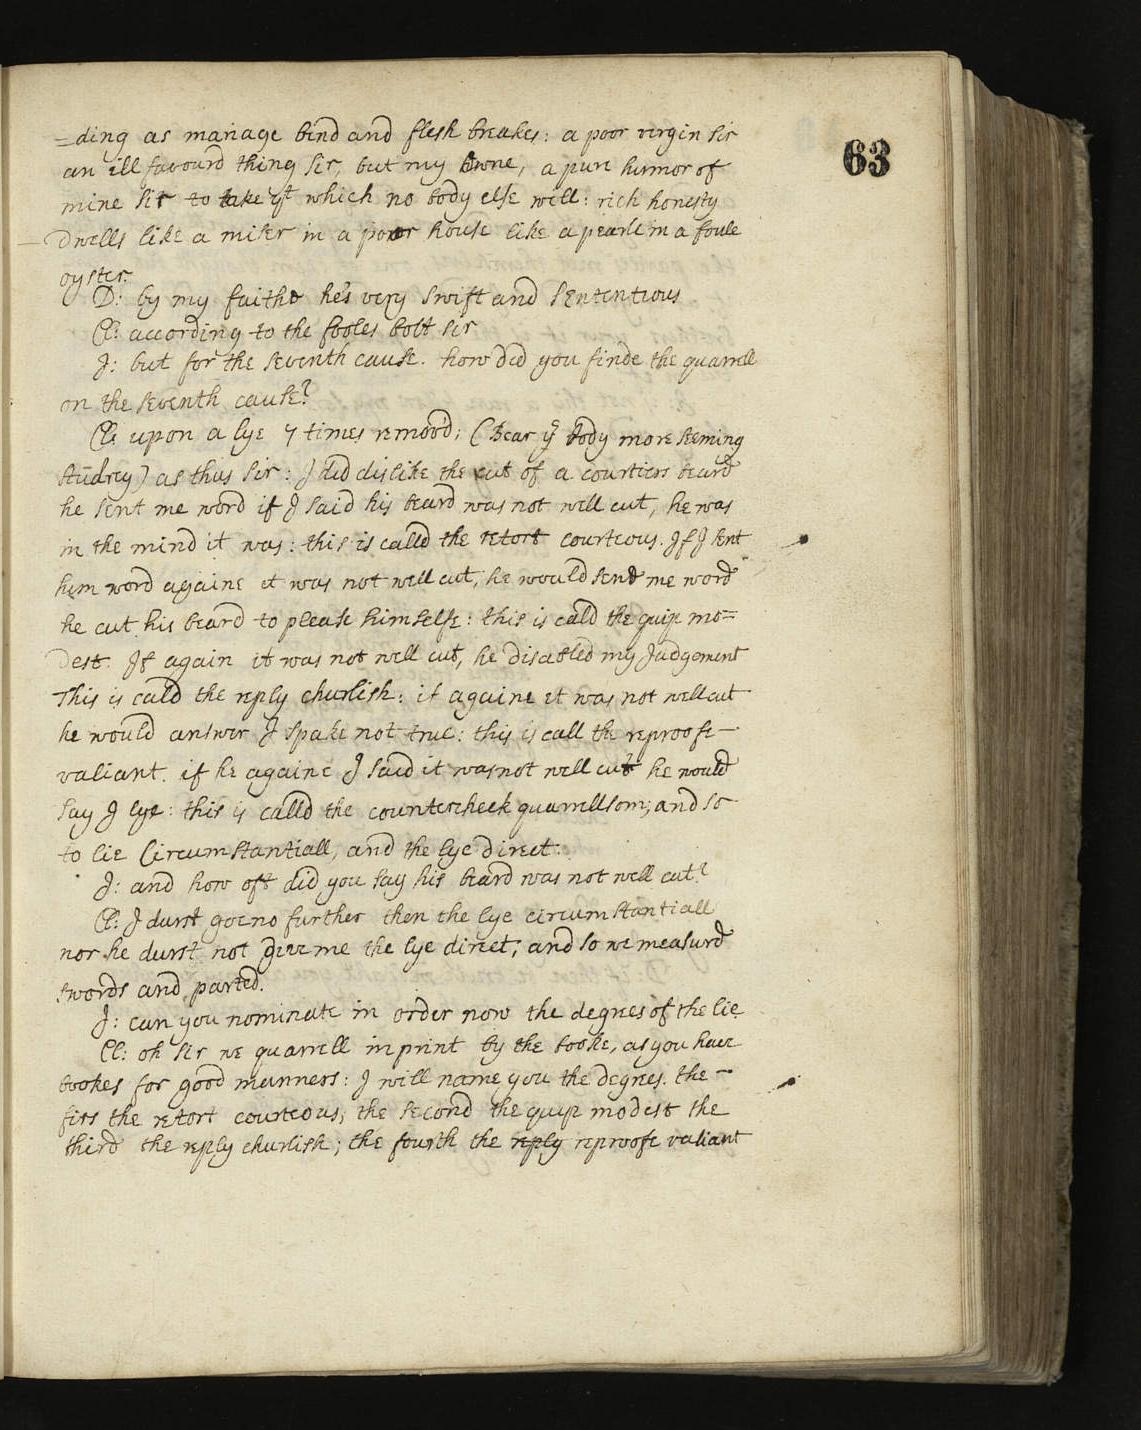 =ding as mariage bind and flesh breakes: a poor virgin sir
63
an ill favourd thing sir, but my owne, a pure humor of
mine sir to take yt which no body else will: rich honesty
Dwells like a miser in a poor house like a pearle in a foule
oyster.
D: by my faith he's very swift and sententious
Cl: according to the fooles bolt sir
J: but for the seventh cause. how did you finde the quarrell
on the seventh cause?
Cl: upon a lye 7 times remoo'd; (Bear yr body more seeming
Audrey) as thus sir: J did dislike the cut of a courtiers beard
he sent me word if J said his beard was not well cut, he was
in the mind it was: this is calld the retort courteous. Jf J sent
him word againe it was not well cut, he would send me word
he cut his beard to please himselfe: this is cald the quip mo=
dest. Jf again it was not well cut, he disabled my Judgement
This is cald the reply churlish: if againe it was not well cut
he would answer J spake not true: this is call the reproofe
valiant. if he againe J said it was not well cut he would
say J lye: this is calld the countercheek quarrellsom; and so
to lie Circumstantiall, and the lye direct.
J: and how oft did you say his beard was not well cut?
Cl: J durst goe no further then the lye circumstantiall
nor he durst not give me the lye direct; and so we measurd
swords and parted.
J: can you nominate in order now the degrees of the lie
Cl: oh sir we quarrell in print by the booke, as you have
bookes for good manners: J will name you the degrees. the
firs the retort courteous; the second the quip modest the
third the reply churlish; the fourth the reply reproofe valiant